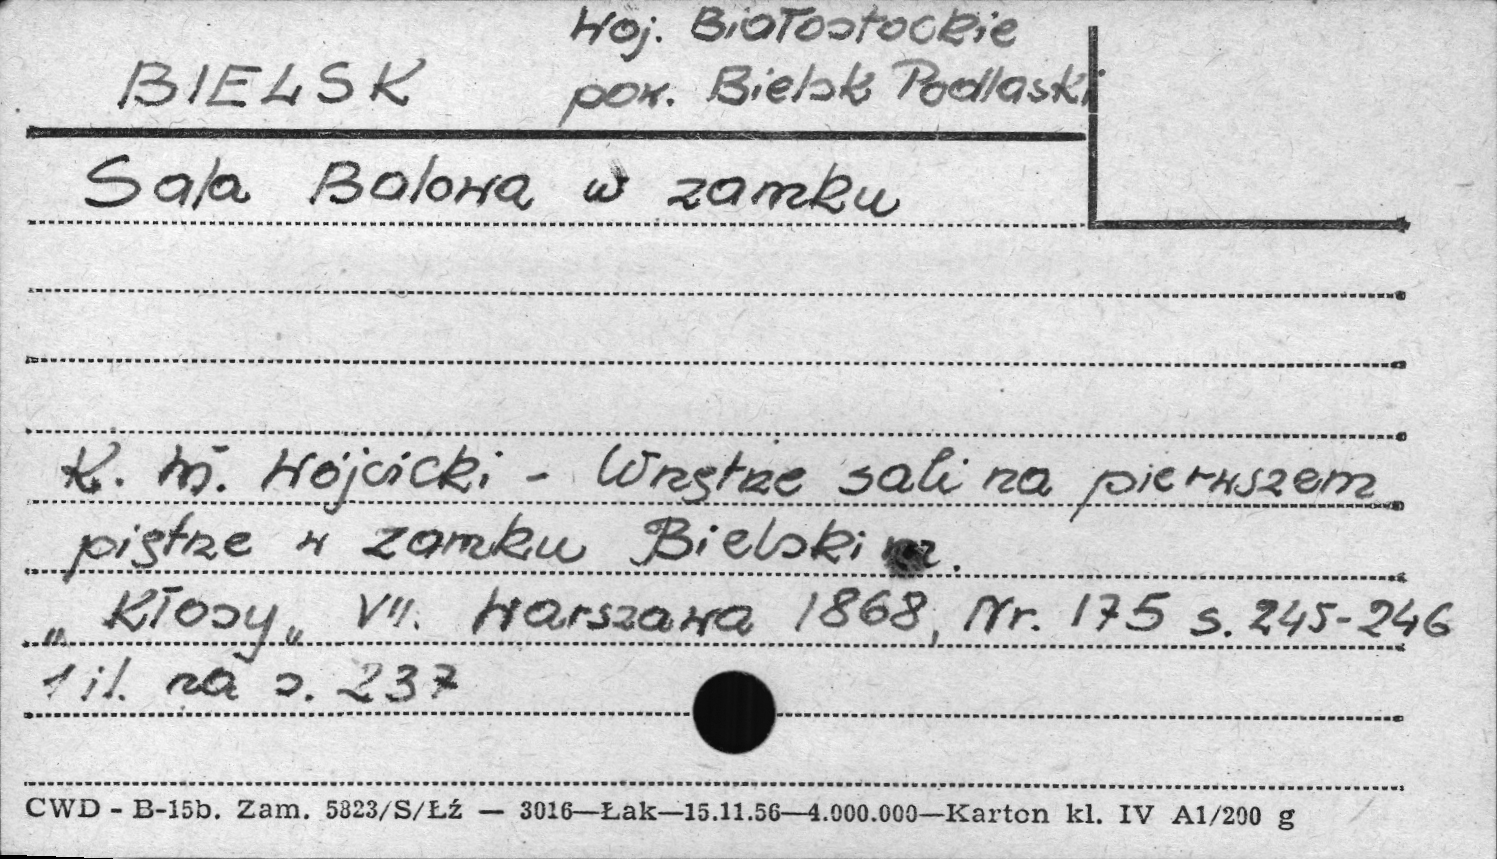 Woj. Białostockie
BIELSK pow. Bielsk Podlaski
Sala Balowa w zamku
K. Wł. Wójcicki - Wnętrze sali na pierwszem
piętrze w zamku Bielskim.
„Kłosy„ VII. Warszawa 1868, Nr. 175 s. 245-246
1 il. na s. 237
CWD - B-15b. Zam. 5823/S/Łź — 3016—Łak—15.11.56—4.000.000—Karton kl. IV A1/200 g